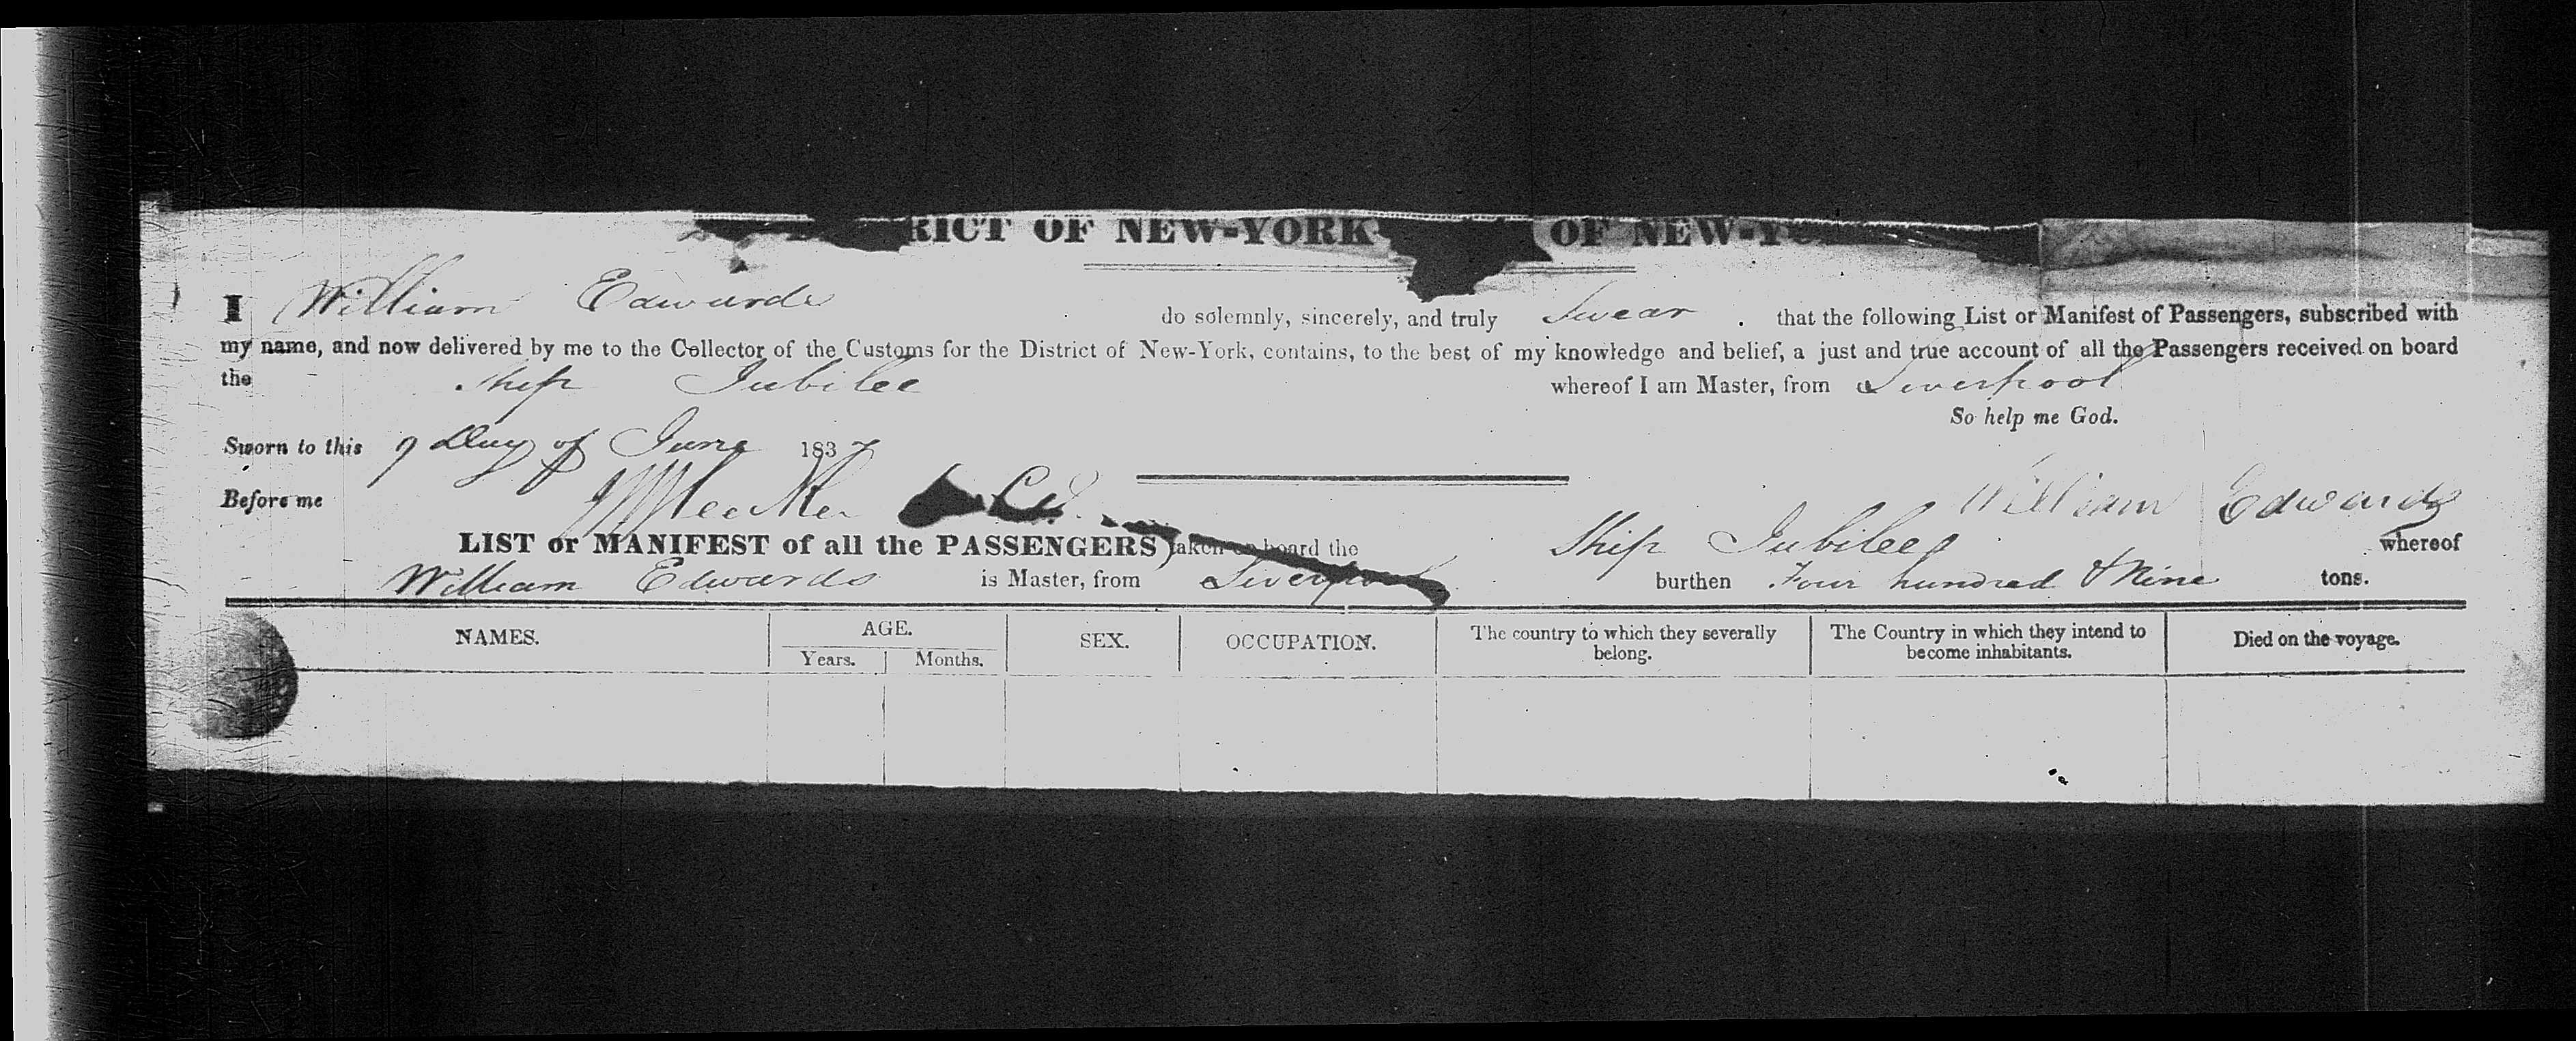 RICT OF NEW-YORK OF NEW-Y
I William Edwards do solemnly, sincerely, and truly Swear that the following List or Manifest of Passengers, subscribed with
my name, and now delivered by me to the Collector of the Customs for the District of New-York, contains, to the best of my knowledge and belief, a just and true account of all the Passengers received on board
the Ship Jubilee whereof I am Master, from Liverpool
So help me God.
Sworn to this 9 Day of June 1837
Before me
William Edwards
LIST or MANIFEST of all the PASSENGERS taken on board the Ship Jubilee whereof
William Edwards is Master, from Liverpool burthen Four hundred & Nine tons.
NAMES. AGE. SEX. OCCUPATION. The country to which they severally belong. The Country in which they intend to become inhabitants. Died on the voyage.
Years. Months.